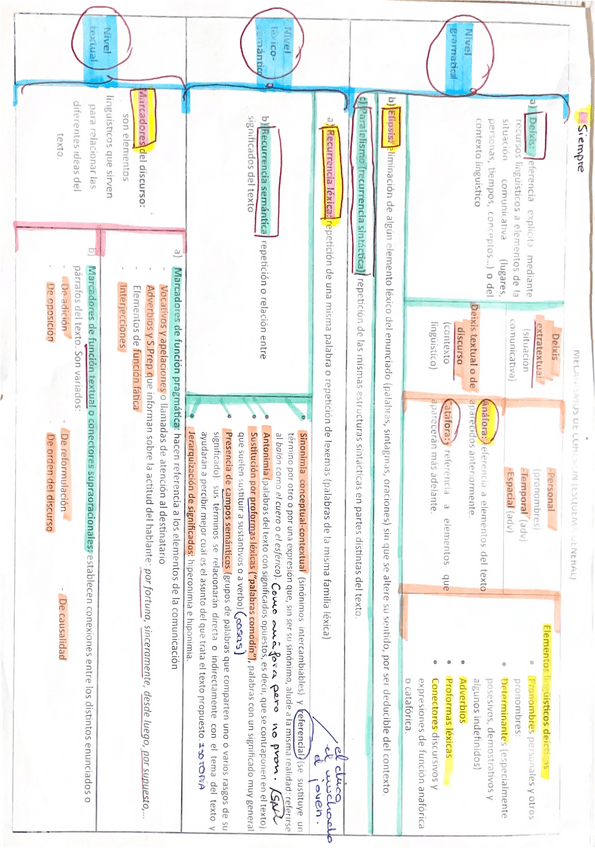 MECANISMOS DE COHESIÓN (ESQUEMA GENERAL)
Siempre
Nivel
gramatical
a) Deixis: referencia explícita mediante
recursos lingüísticos a elementos de la
situación comunicativa (lugares,
personas, tiempos, conceptos…) o del
contexto lingüístico
Deixis
extratextual
(situación
comunicativa)
- Personal
(pronombres)
-Temporal (adv)
-Espacial (adv)
Deixis textual o de
discurso
(contexto
lingüístico)
anáfora: referencia a elementos del texto
aparecidos anteriormente.
catáfora: referencia a elementos que
aparecerán más adelante.
Elementos lingüísticos deícticos
Pronombres personales y otros
pronombres.
Determinantes (especialmente
posesivos, demostrativos y
algunos indefinidos)
Adverbios
Proformas léxicas
Conectores discursivos y
expresiones de función anafórica
o catafórica.
b) Elipsis: eliminación de algún elemento léxico del enunciado (palabras, sintagmas, oraciones) sin que se altere su sentido, por ser deducible del contexto
c) Paralelismo (recurrencia sintáctica): repetición de las mismas estructuras sintácticas en partes distintas del texto.
Nivel
léxico-
semántico
a) Recurrencia léxica: repetición de una misma palabra o repetición de lexemas (palabras de la misma familia léxica)
b) Recurrencia semántica: repetición o relación entre
significados del texto
Sinonimia conceptual-contextual (sinónimos intercambiables) y referencial (se sustituye un
término por otro o por una expresión que, sin ser su sinónimo, alude a la misma realidad: referirse
al balón como el cuero o el esférico).
el chico
el muchacho
el joven.
Antonimia (palabras del texto con significados opuestos, es decir, que se contraponen en el texto).
Sustitución por proformas léxicas ("palabras comodín"), palabras con un significado muy general
que suelen sustituir a sustantivos o a verbo) (cosas)
Como anáfora pero no pron.
Presencia de campos semánticos (grupos de palabras que comparten uno o varios rasgos de su
significado): sus términos se relacionarán directa o indirectamente con el tema del texto y
ayudarán a percibir mejor cuál es el asunto del que trata el texto propuesto
Jerarquización de significados: hiperonimia e hiponimia.
Nivel
textual
Marcadores del discurso:
son elementos
lingüísticos que sirven
para relacionar las
diferentes ideas del
texto.
a) Marcadores de función pragmática: hacen referencia a los elementos de la comunicación
- Vocativos y apelaciones o llamadas de atención al destinatario
- Adverbios y S.Prep que informan sobre la actitud del hablante: por fortuna, sinceramente, desde luego, por supuesto,…
- Elementos de función fática
- Interjecciones
b) Marcadores de función textual o conectores supraoracionales: establecen conexiones entre los distintos enunciados o
párrafos del texto. Son variados:
- De adición
- De oposición
- De reformulación
- De orden del discurso
- De causalidad